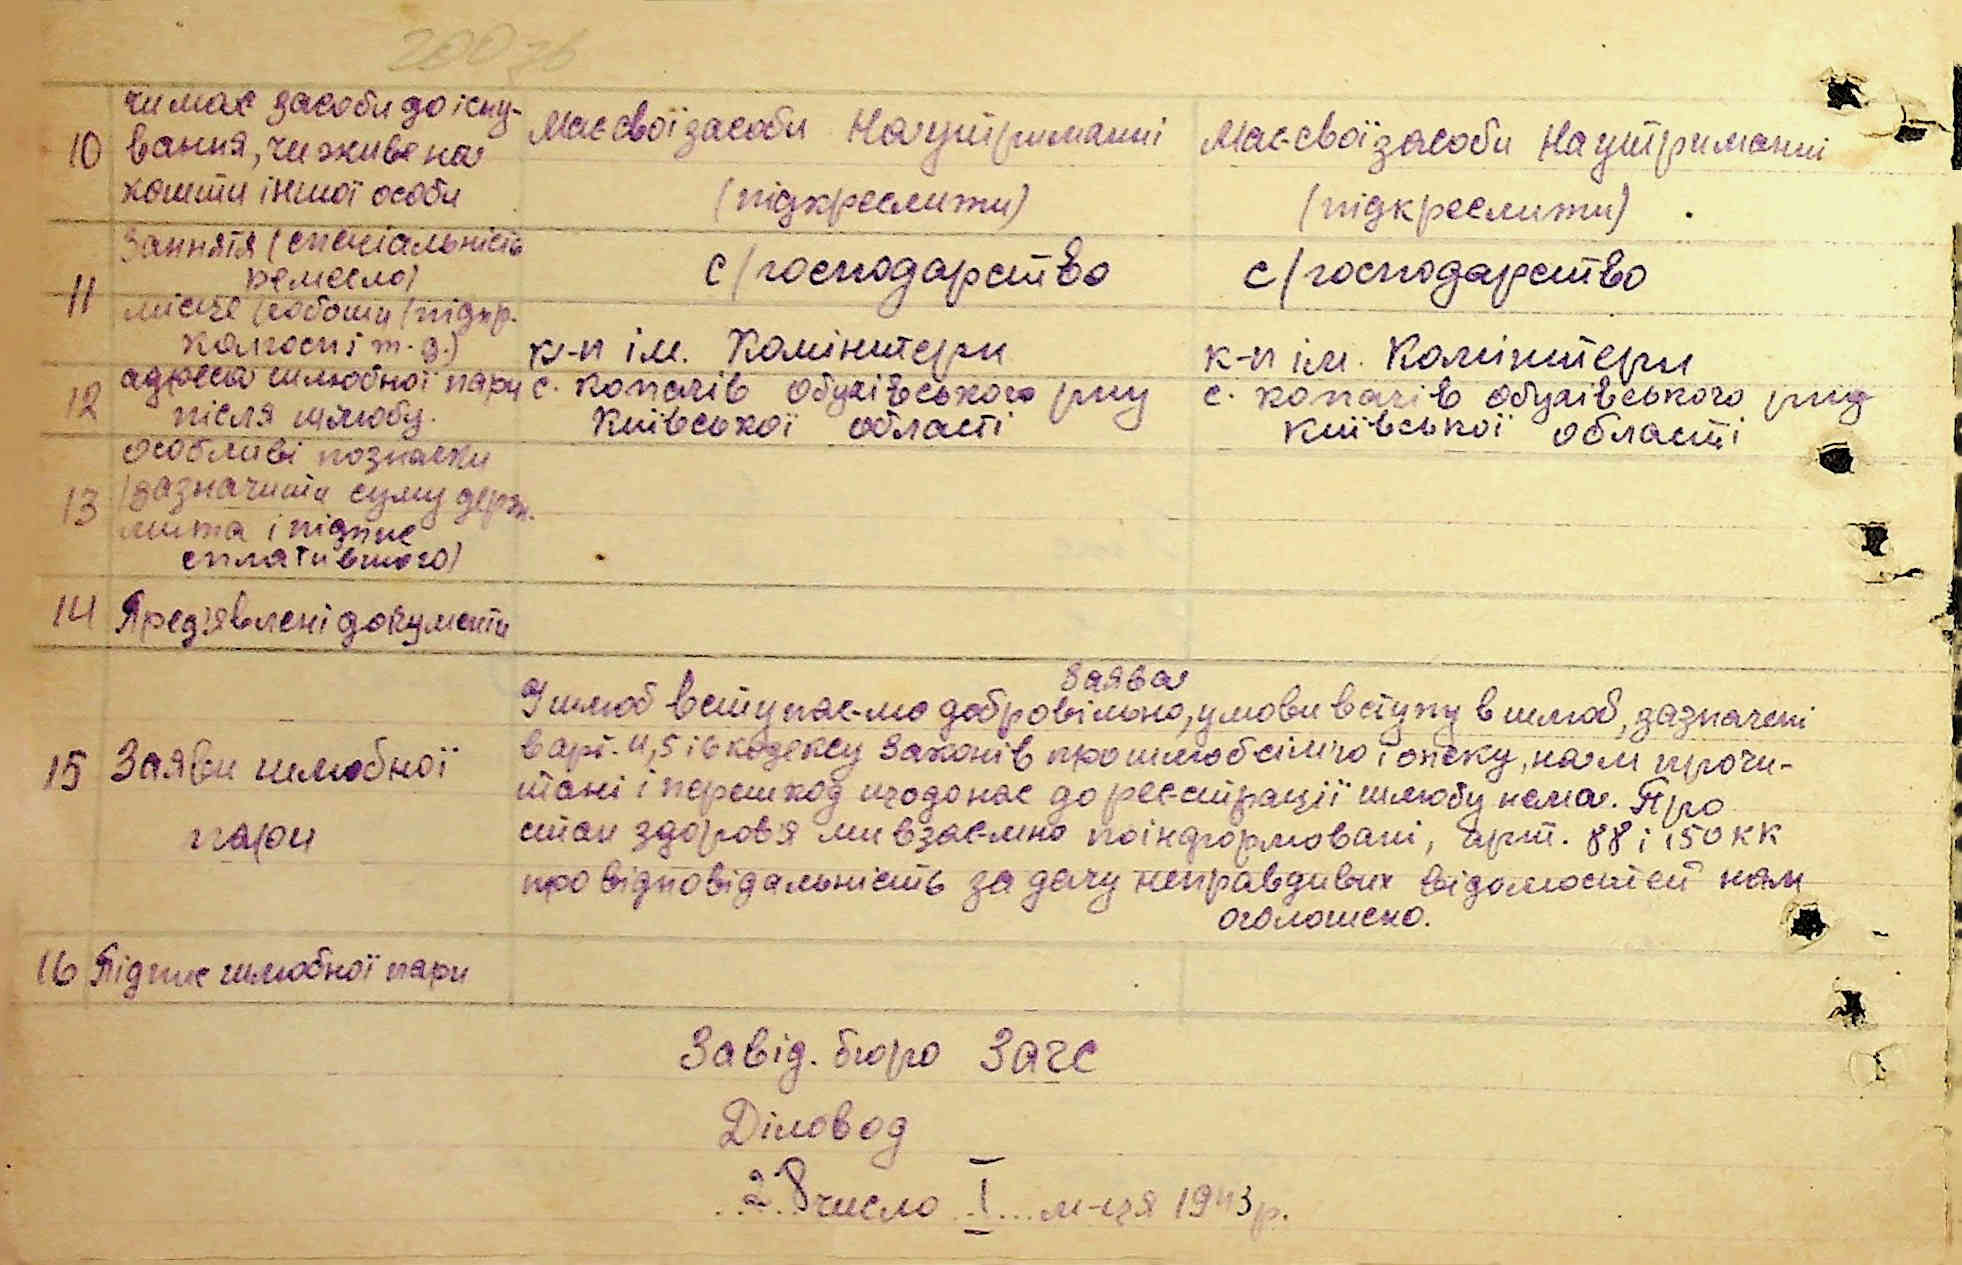 200 зб
10 чи має засоби до існу- Має свої засоби На утриманні Має свої засоби На утриманні
вання, чи живе на
кошти іншої особи (підкреслити) (підкреслити)
11 Заняття (спеціальність с/господарство с/господарство
ремесло)
місце роботи (підпр.
колгосп і т.д.) к-п ім. Комінтерн к-п ім. Комінтерн
12 адреса шлюбної пари с. Копачів Обухівського р-ну с. Копачів Обухівського р-ну
після шлюбу. Київської області Київської області
13 особливі позначки
(зазначити суму держ.
мита і підпис
сплатившого)
14 Пред'явлені документи
Заява
15 Заяви шлюбної
пари
У шлюб вступає-мо добровільно, умови вступу в шлюб, зазначені
в арт. 4, 5 і 6 кодексу Законів про шлюб сім'ю і опеку, нам прочи-
тані і перешкод щодо нас до реєстрації шлюбу нема. Про
стан здоров'я ми взаємно поінформовані, арт. 88 і 150 КК
про відповідальність за дачу неправдивих відомостей нам
оголошено.
16 Підпис шлюбної пари
Завід. бюро Загс
Діловод
28 число I м-ця 1943 р.